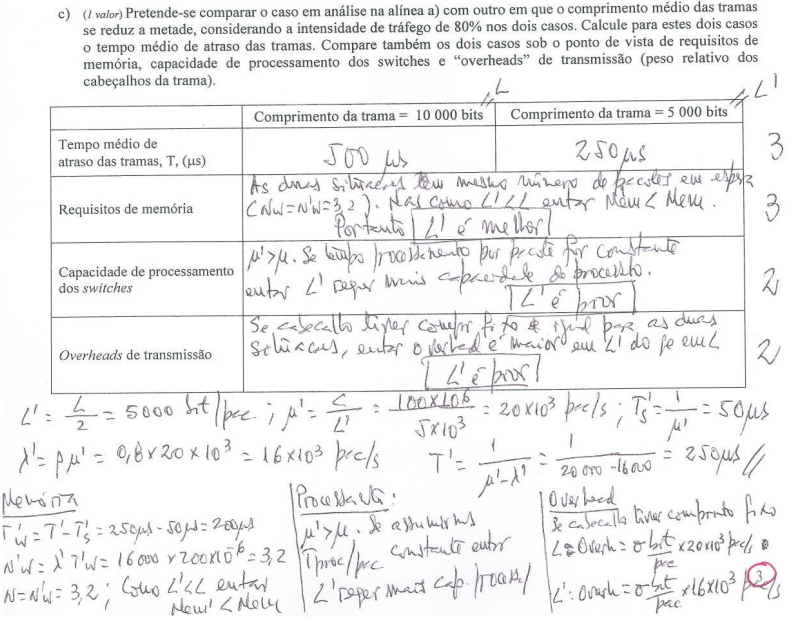 c) (1 valor) Pretende-se comparar o caso em análise na alínea a) com outro em que o comprimento médio das tramas
se reduz a metade, considerando a intensidade de tráfego de 80% nos dois casos. Calcule para estes dois casos
o tempo médio de atraso das tramas. Compare também os dois casos sob o ponto de vista de requisitos de
memória, capacidade de processamento dos switches e “overheads” de transmissão (peso relativo dos
cabeçalhos da trama).
L L'
Comprimento da trama = 10 000 bits Comprimento da trama = 5 000 bits
Tempo médio de
atraso das tramas, T, (μs)
500 μs 250 μs 3
Requisitos de memória
As duas situações têm mesmo número de pacotes em espera
(Nw=N'w=3,2). Mas como L'<L entar Mem'< Mem.
Portanto L' é melhor
3
Capacidade de processamento
dos switches
μ'>μ. Se tempo processamento por pacote for constante
entar L' requer mais capacidade de processto.
L' é pior
2
Overheads de transmissão
Se cabecalho tiver compr. fixo e igual para as duas
situacoes, entar overhead é maior em L' do que em L
L' é pior
2
L' = L/2 = 5000 bit/pac ; μ' = C/L' = 100x10⁶/5x10³ = 20x10³ pac/s ; Ts' = 1/μ' = 50μs
λ' = ρμ' = 0,8x20x10³ = 16x10³ pac/s T' = 1/(μ'-λ') = 1/(20 000-16000) = 250μs //
Memória
T'w = T'-Ts' = 250μs-50μs = 200μs
N'w = λ' T'w = 16000 x 200x10⁻⁶ = 3,2
N=N'w = 3,2 ; Como L'<L entar
Mem' < Mem
μ'>μ. Se assumirmos
Tproc/pac constante entar
L' requer mais cap. process/
Overhead
Se cabecalho tiver compmto fixo
L: Overh = σ bit/pac x20x10³ pac/s
L': Overh = σ bit/pac x16x10³ pac/s
3